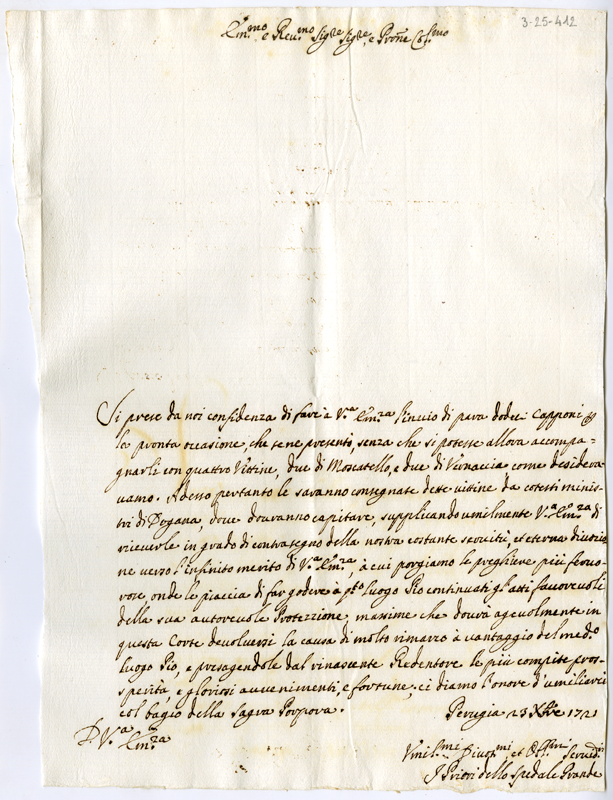 3-25-412
Em.mo e Rev.mo Sig.re Sig.re, e Prone Col.mo
Si prese da noi confidenza di fare à V.a Em.za l'inuio di para dodeci Capponi
la pronta occasione, che se ne presentò, senza che si potesse allora accompa=
gnarli con quattro Vittine, due di Moscatello, e due di Vernaccia come desidera
uamo. Adesso pertanto le saranno consegnate dette vittine da cotesti minis=
tri di Dogana, doue douranno capitare, supplicando umilmente V.a Em.za di
riceverle in grado di contrasegno della nostra costante seruitù, et eterna diuozio
ne verso l'infinito merito di V.a Em.za à cui porgiamo le preghiere più feruo=
rose, onde le piaccia di far godere à q.to luogo Pio continuati gl'atti fauoreuoli
della sua autoreuole Protezzione, massime che dourà ageuolmente in
questa Corte deuoluersi la causa di molto rimarco à vantaggio del med.o
luogo Pio, e presagendole dal rinascente Redentore le più compite pros=
sperità, e gloriosi auuenimenti, e fortune, ci diamo l'onore d'umiliarci
col bagio della Sagra Porpora.
Perugia 23 Xbre 1721
D. V.a Em.za
Vmil.mi Diuot.mi, et Obl.mi Seruid.ri
I Priori dello Spedale Grande